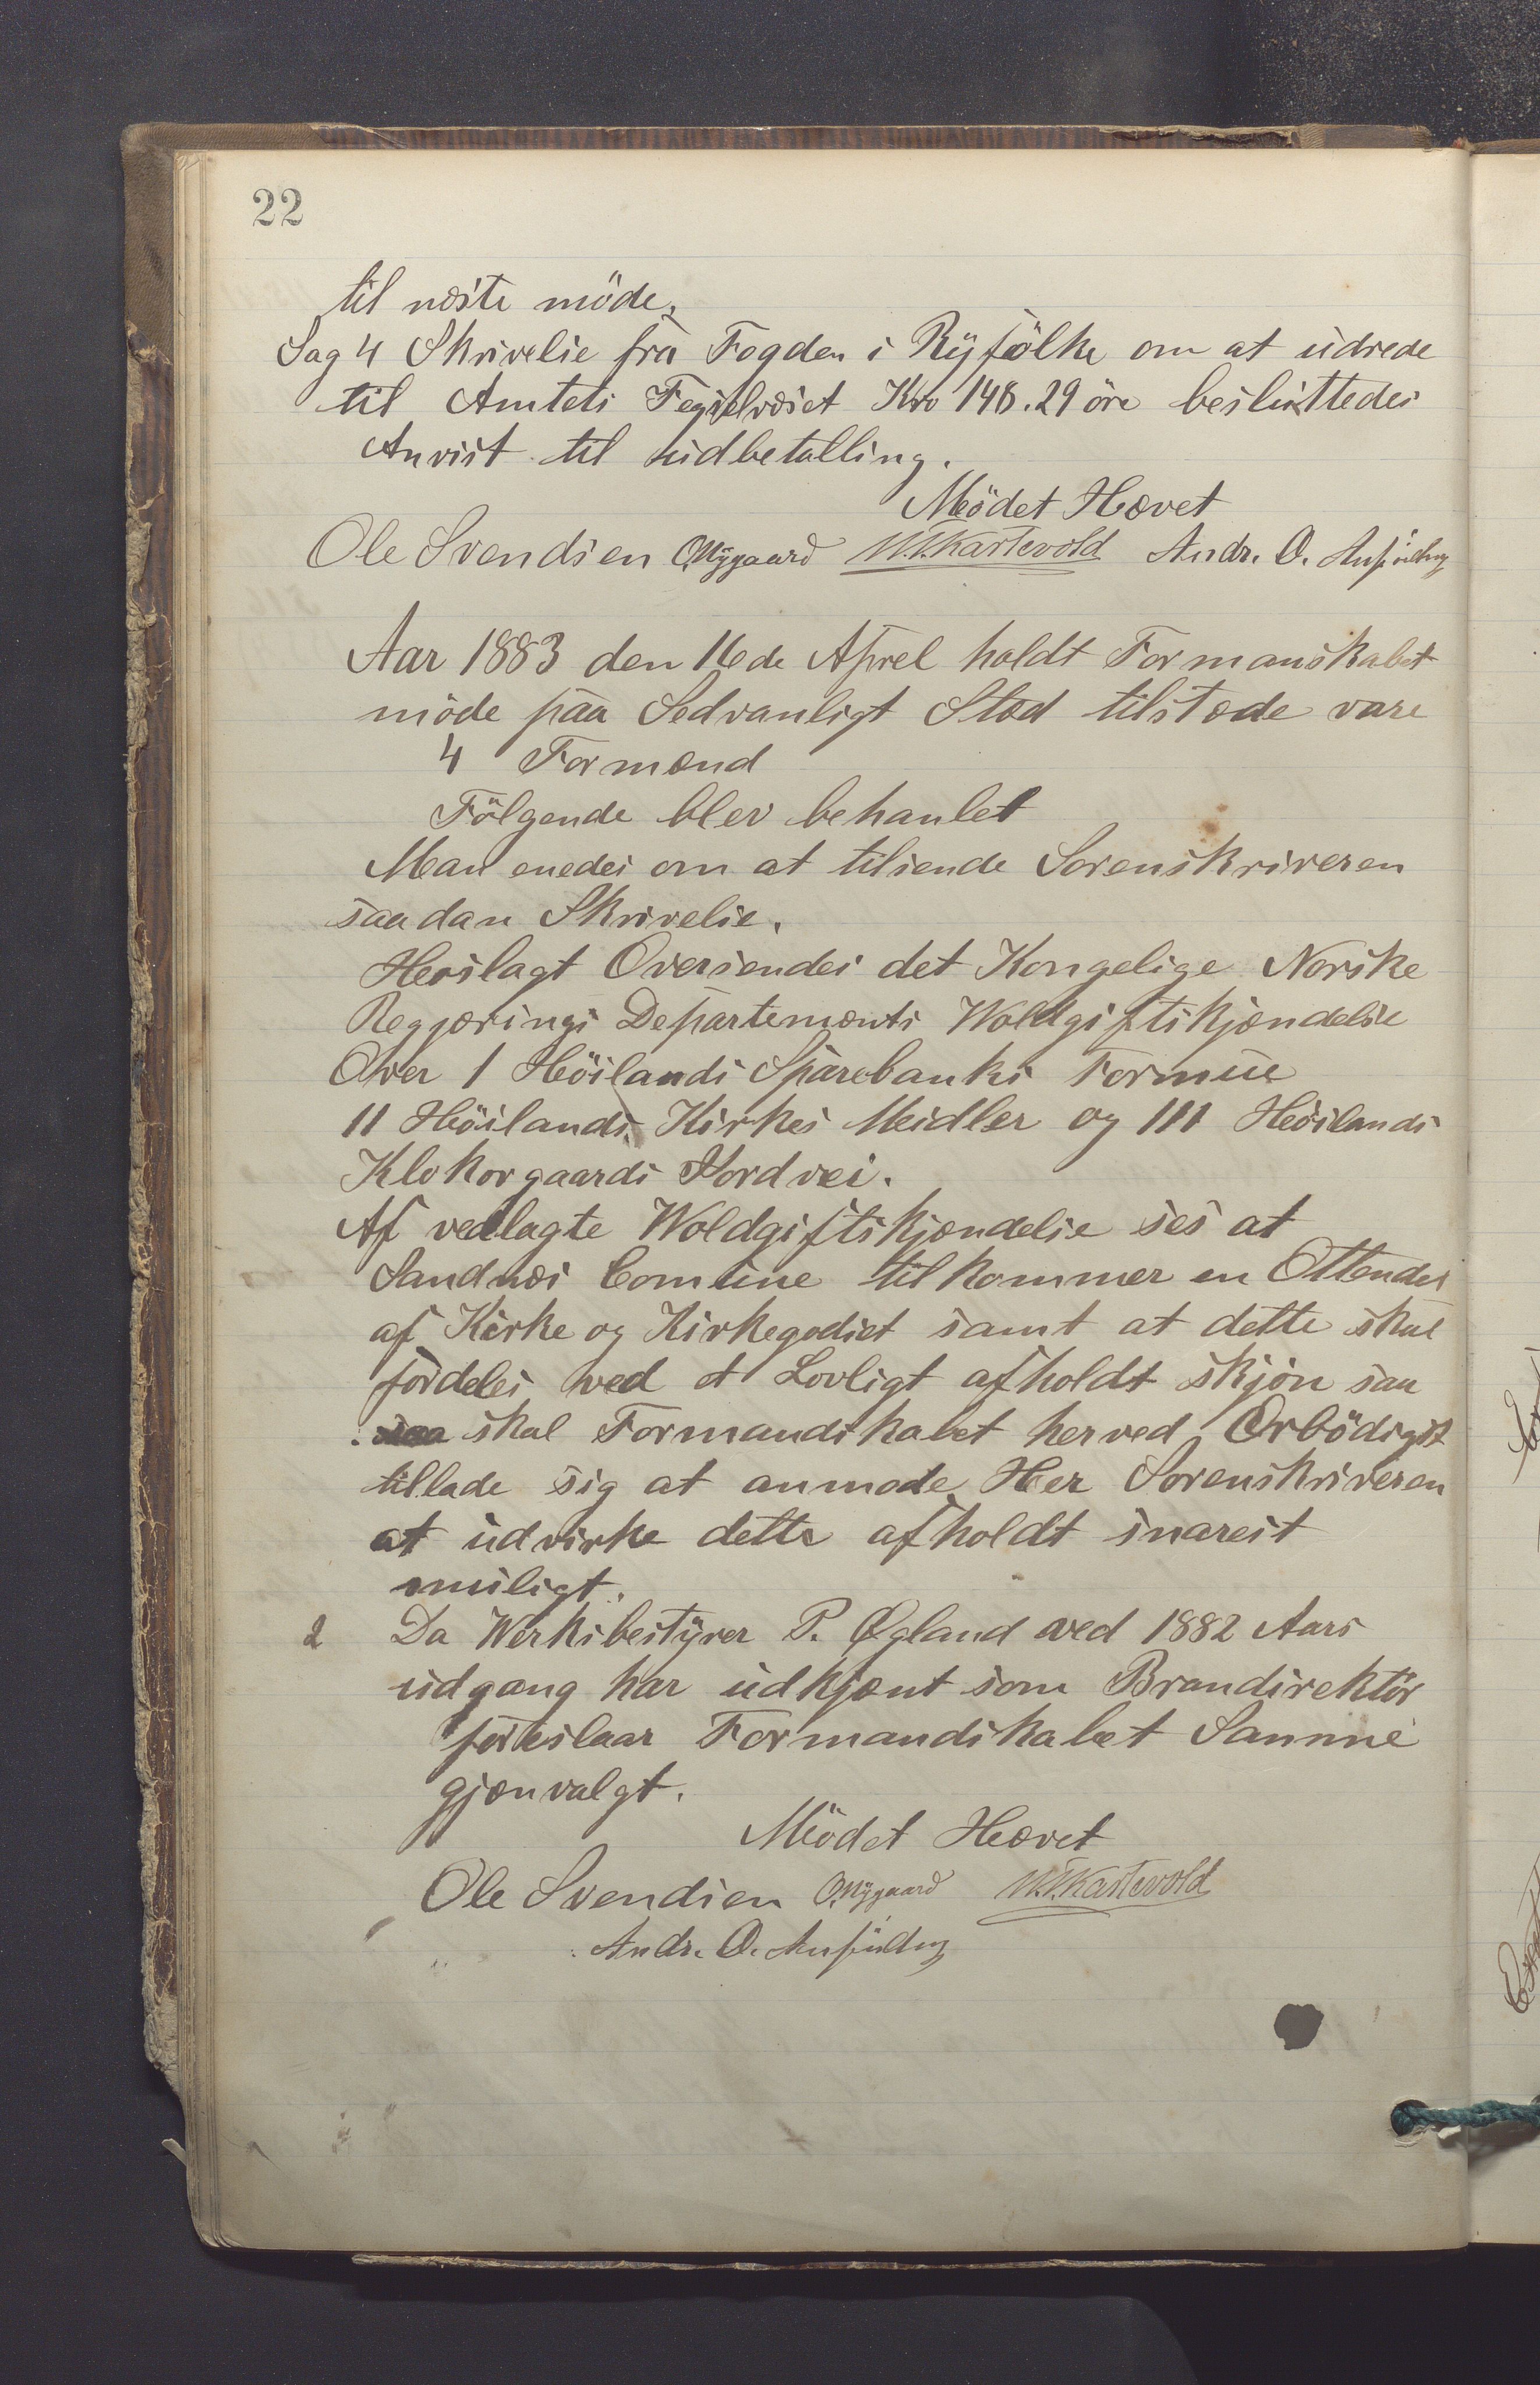 22
til næste möde,
Sag 4 Skrivelse fra Fogden i Ryfölke om at udrede
til Amtets Fegselvæset Kro 148.29 öre besluttedes
Anvist til udbetalling.
Mödet Hævet
Ole Svendsen O. Nygaard Kastevold Andr. O.
Aar 1883 den 16de Aprel holdt Formanskabet
möde paa Sedvanligt Stæd tilstæde vare
4 Formænd
Fölgende blev behanlet
Man enedes om at tilsende Sorenskriveren
saadan Skrivelse.
Hoslagt Oversendes det Kongelige Norske
Regjærings Departements Woldgiftskjændelse
Over 1 Höilands Sparebanks Formue
11 Höilands Kirkes Meidler og 111 Höilands
Klokorgaards Jordvei.
Af vedlagte Woldgiftskjændelse ses at
Sandnæs Comune tilkommer en Ottendel
af Kirke og Kirkegodset samt at dette skal
fordeles ved et Lovligt afholdt skjön saa
skal Formandskabet herved Örbödigst
tillade sig at anmode Her Sorenskriveren
at udvirke dette afholdt snarest
muligt.
2 Da Werksbestyrer P. Øgland ved 1882 Aars
udgang har udkjænt som Brandirektör
foreslaar Formandskabet Samme
gjænvalgt.
Mödet Hævet
Ole Svendsen O. Nygaard Kastevold
Andr. O.